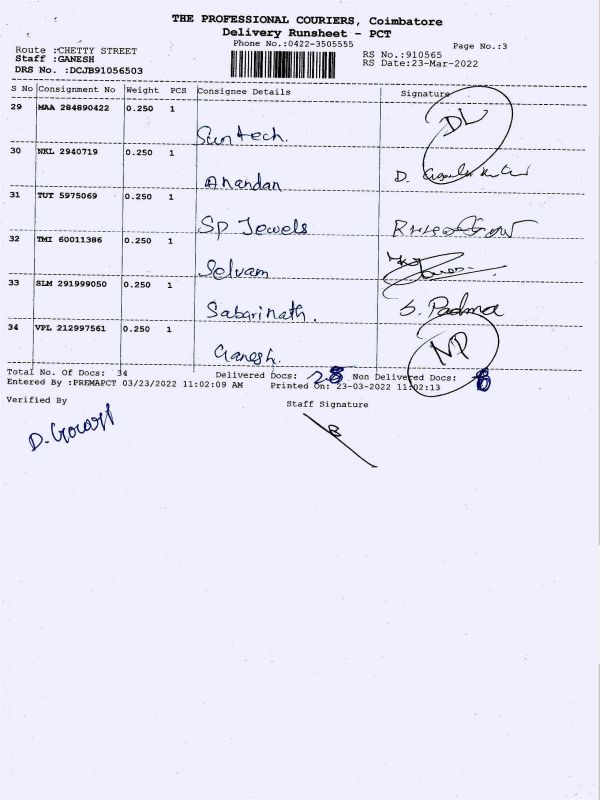 THE PROFESSIONAL COURIERS, Coimbatore
Delivery Runsheet - PCT
Phone No.:0422-3505555
Page No.:3
Route :CHETTY STREET
Staff :GANESH
DRS No. :DCJB91056503
RS No.:910565
RS Date:23-Mar-2022
S No Consignment No Weight PCS Consignee Details Signature
29 MAA 284890422 0.250 1 Suntech. DL
30 NKL 2940719 0.250 1 Anandan D.
31 TUT 5975069 0.250 1 Sp Jewels
32 TMI 60011386 0.250 1 Selvam
33 SLM 291999050 0.250 1 Sabarinath. S. Padma
34 VPL 212997561 0.250 1 Ganesh. NP
Total No. Of Docs: 34 Delivered Docs: 28 Non Delivered Docs: 6
Entered By :PREMAPCT 03/23/2022 11:02:09 AM Printed On: 23-03-2022 11:02:13
Verified By
Staff Signature
D.